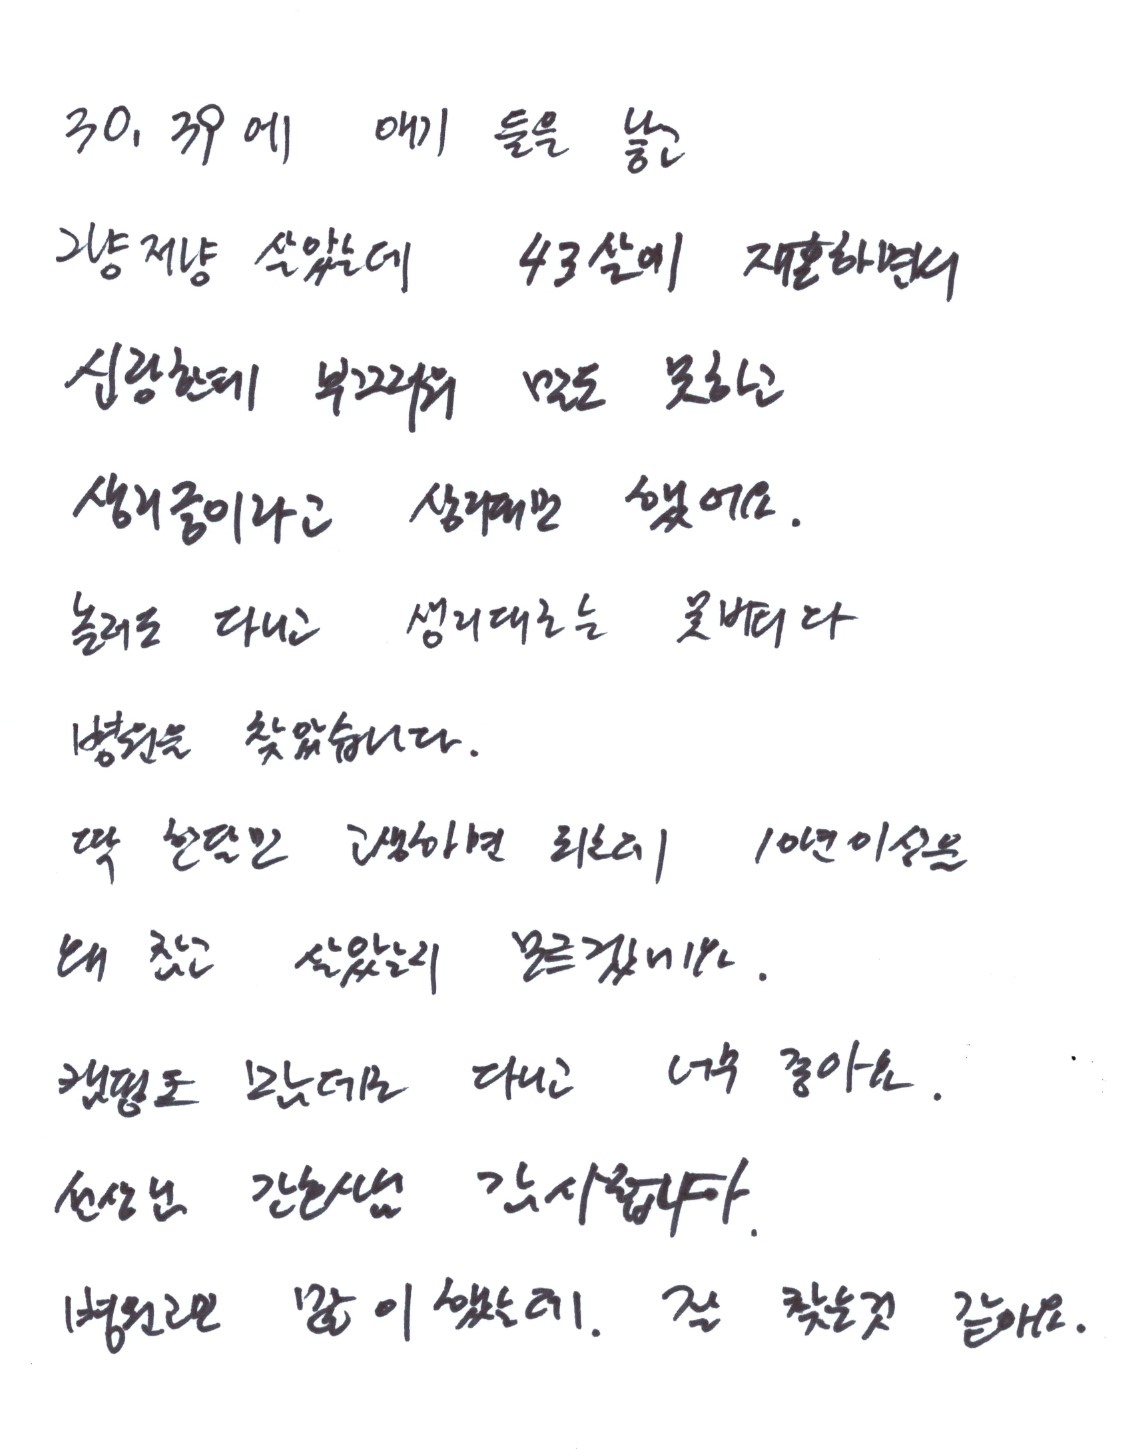 30, 39에 애기 들을 낳고
그냥저냥 살았는데 43살에 재혼하면서
신랑한테 부끄러워 말도 못하고
생리중이라고 생리대만 했어요.
놀러도 다니고 생리대로는 못버티다
병원을 찾았습니다.
딱 한달만 고생하면 되는데 10년이상을
왜 참고 살았는지 모르겠네요.
캠핑도 맘데로 다니고 너무 좋아요.
선상님 간호사님 감사합니다.
병원고민 많이 했는데. 잘 찾는것 같애요.